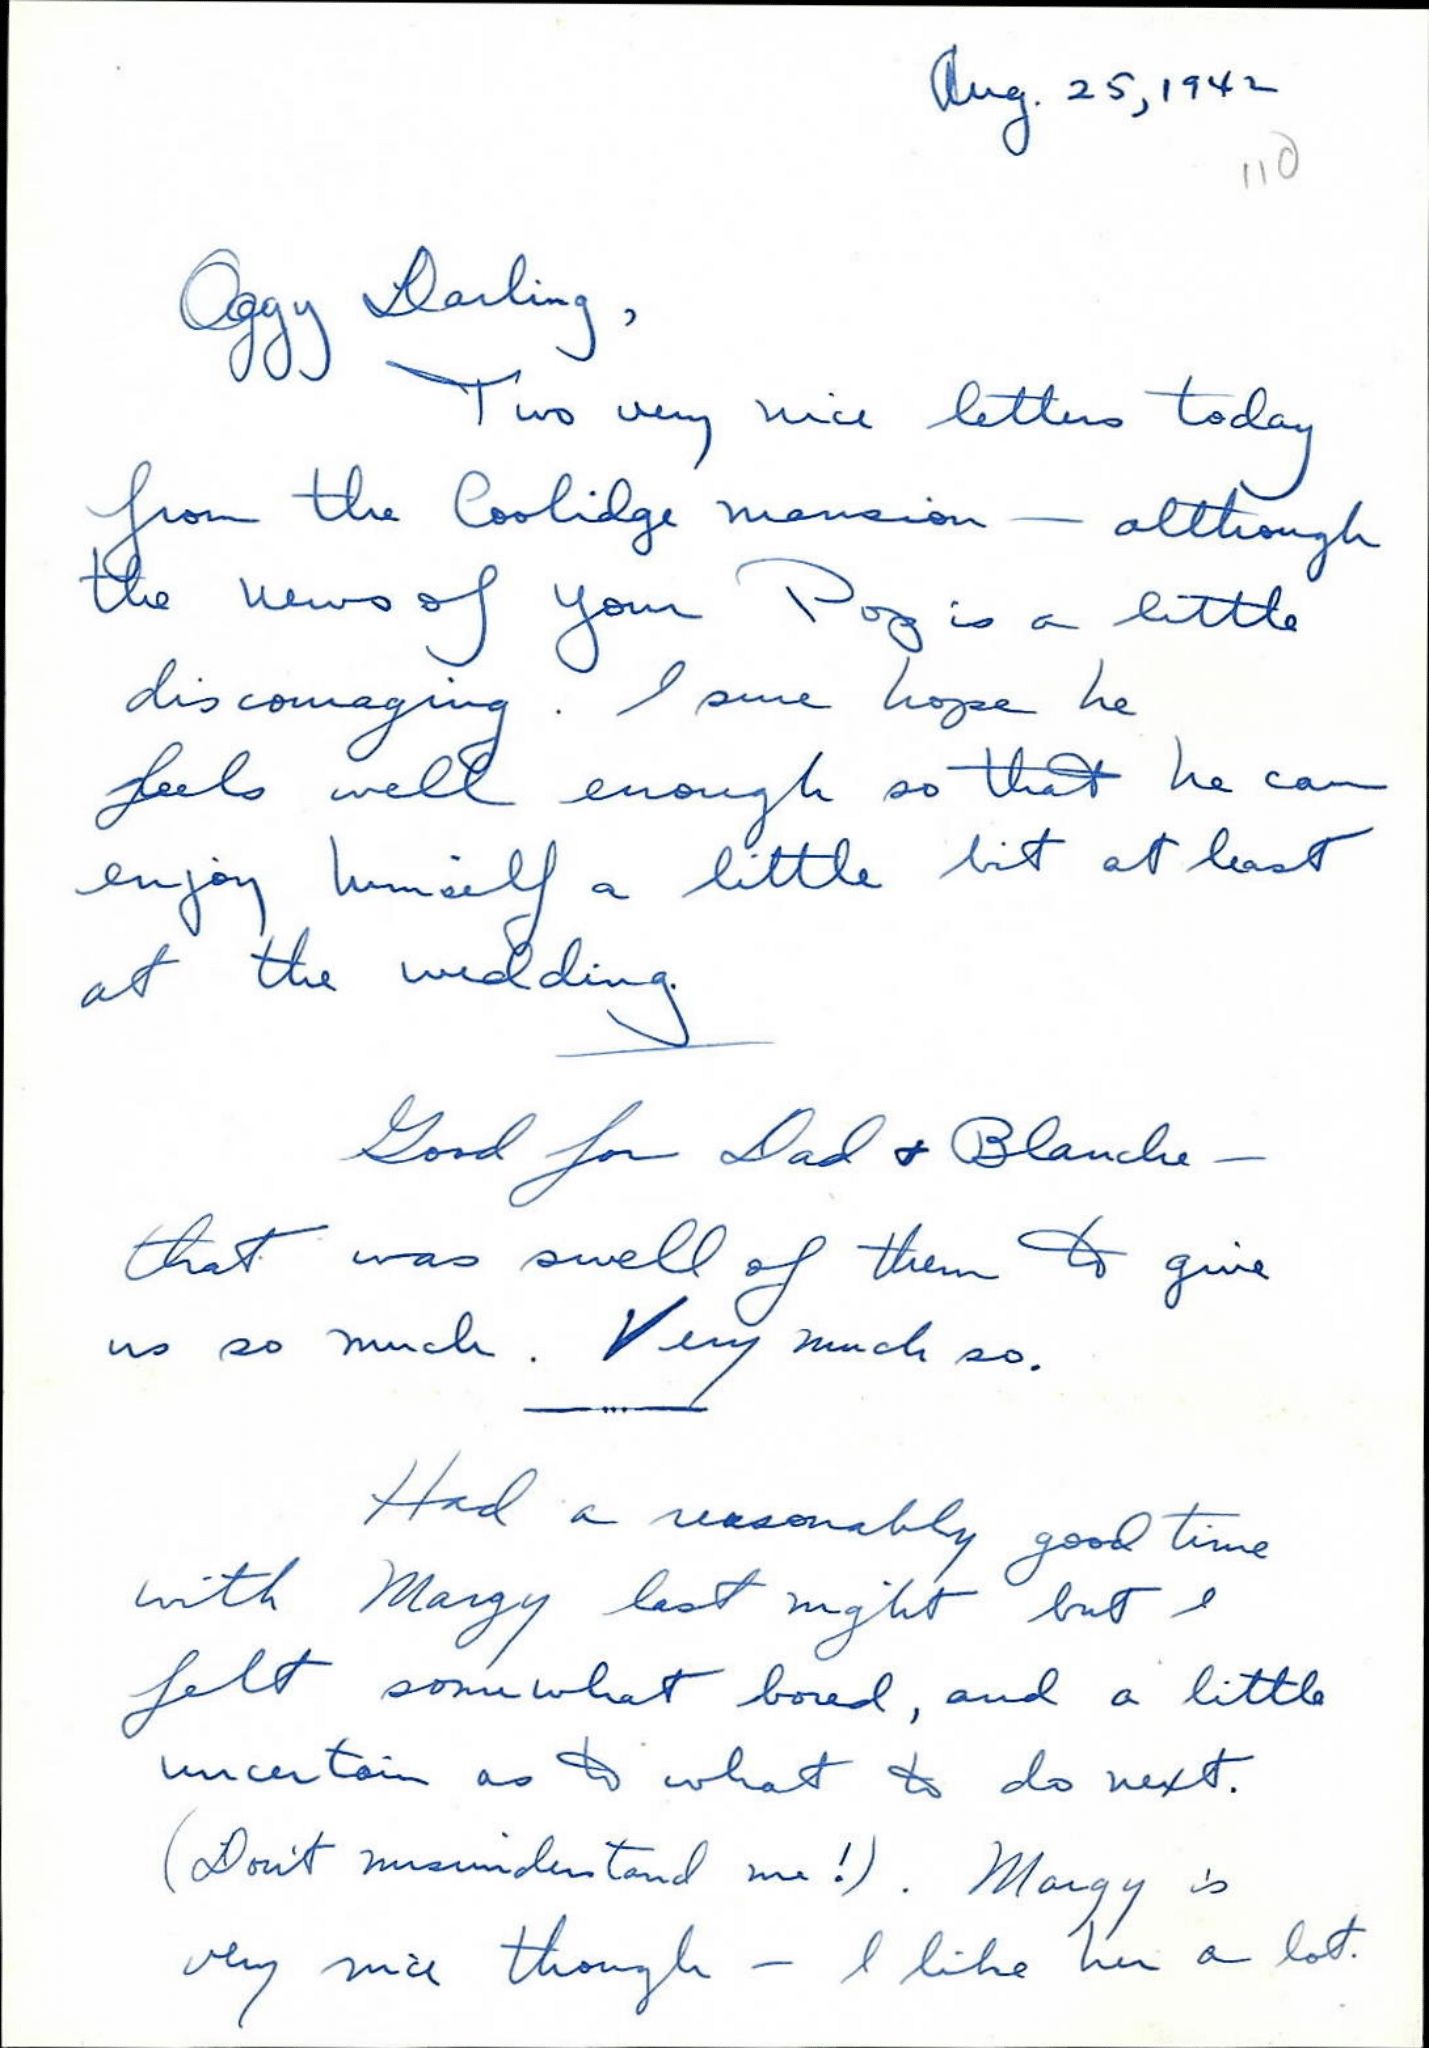 Aug. 25, 1942
110
Oggy Darling,
Two very nice letters today
from the Coolidge mansion — although
the news of your Pop is a little
discouraging. I sure hope he
feels well enough so that he can
enjoy himself a little bit at least
at the wedding.
Good for Dad & Blanche —
that was swell of them to give
us so much. Very much so.
Had a reasonably good time
with Margy last night but I
felt somewhat bored, and a little
uncertain as to what to do next.
(Don't misunderstand me!). Margy is
very nice though — I like her a lot.